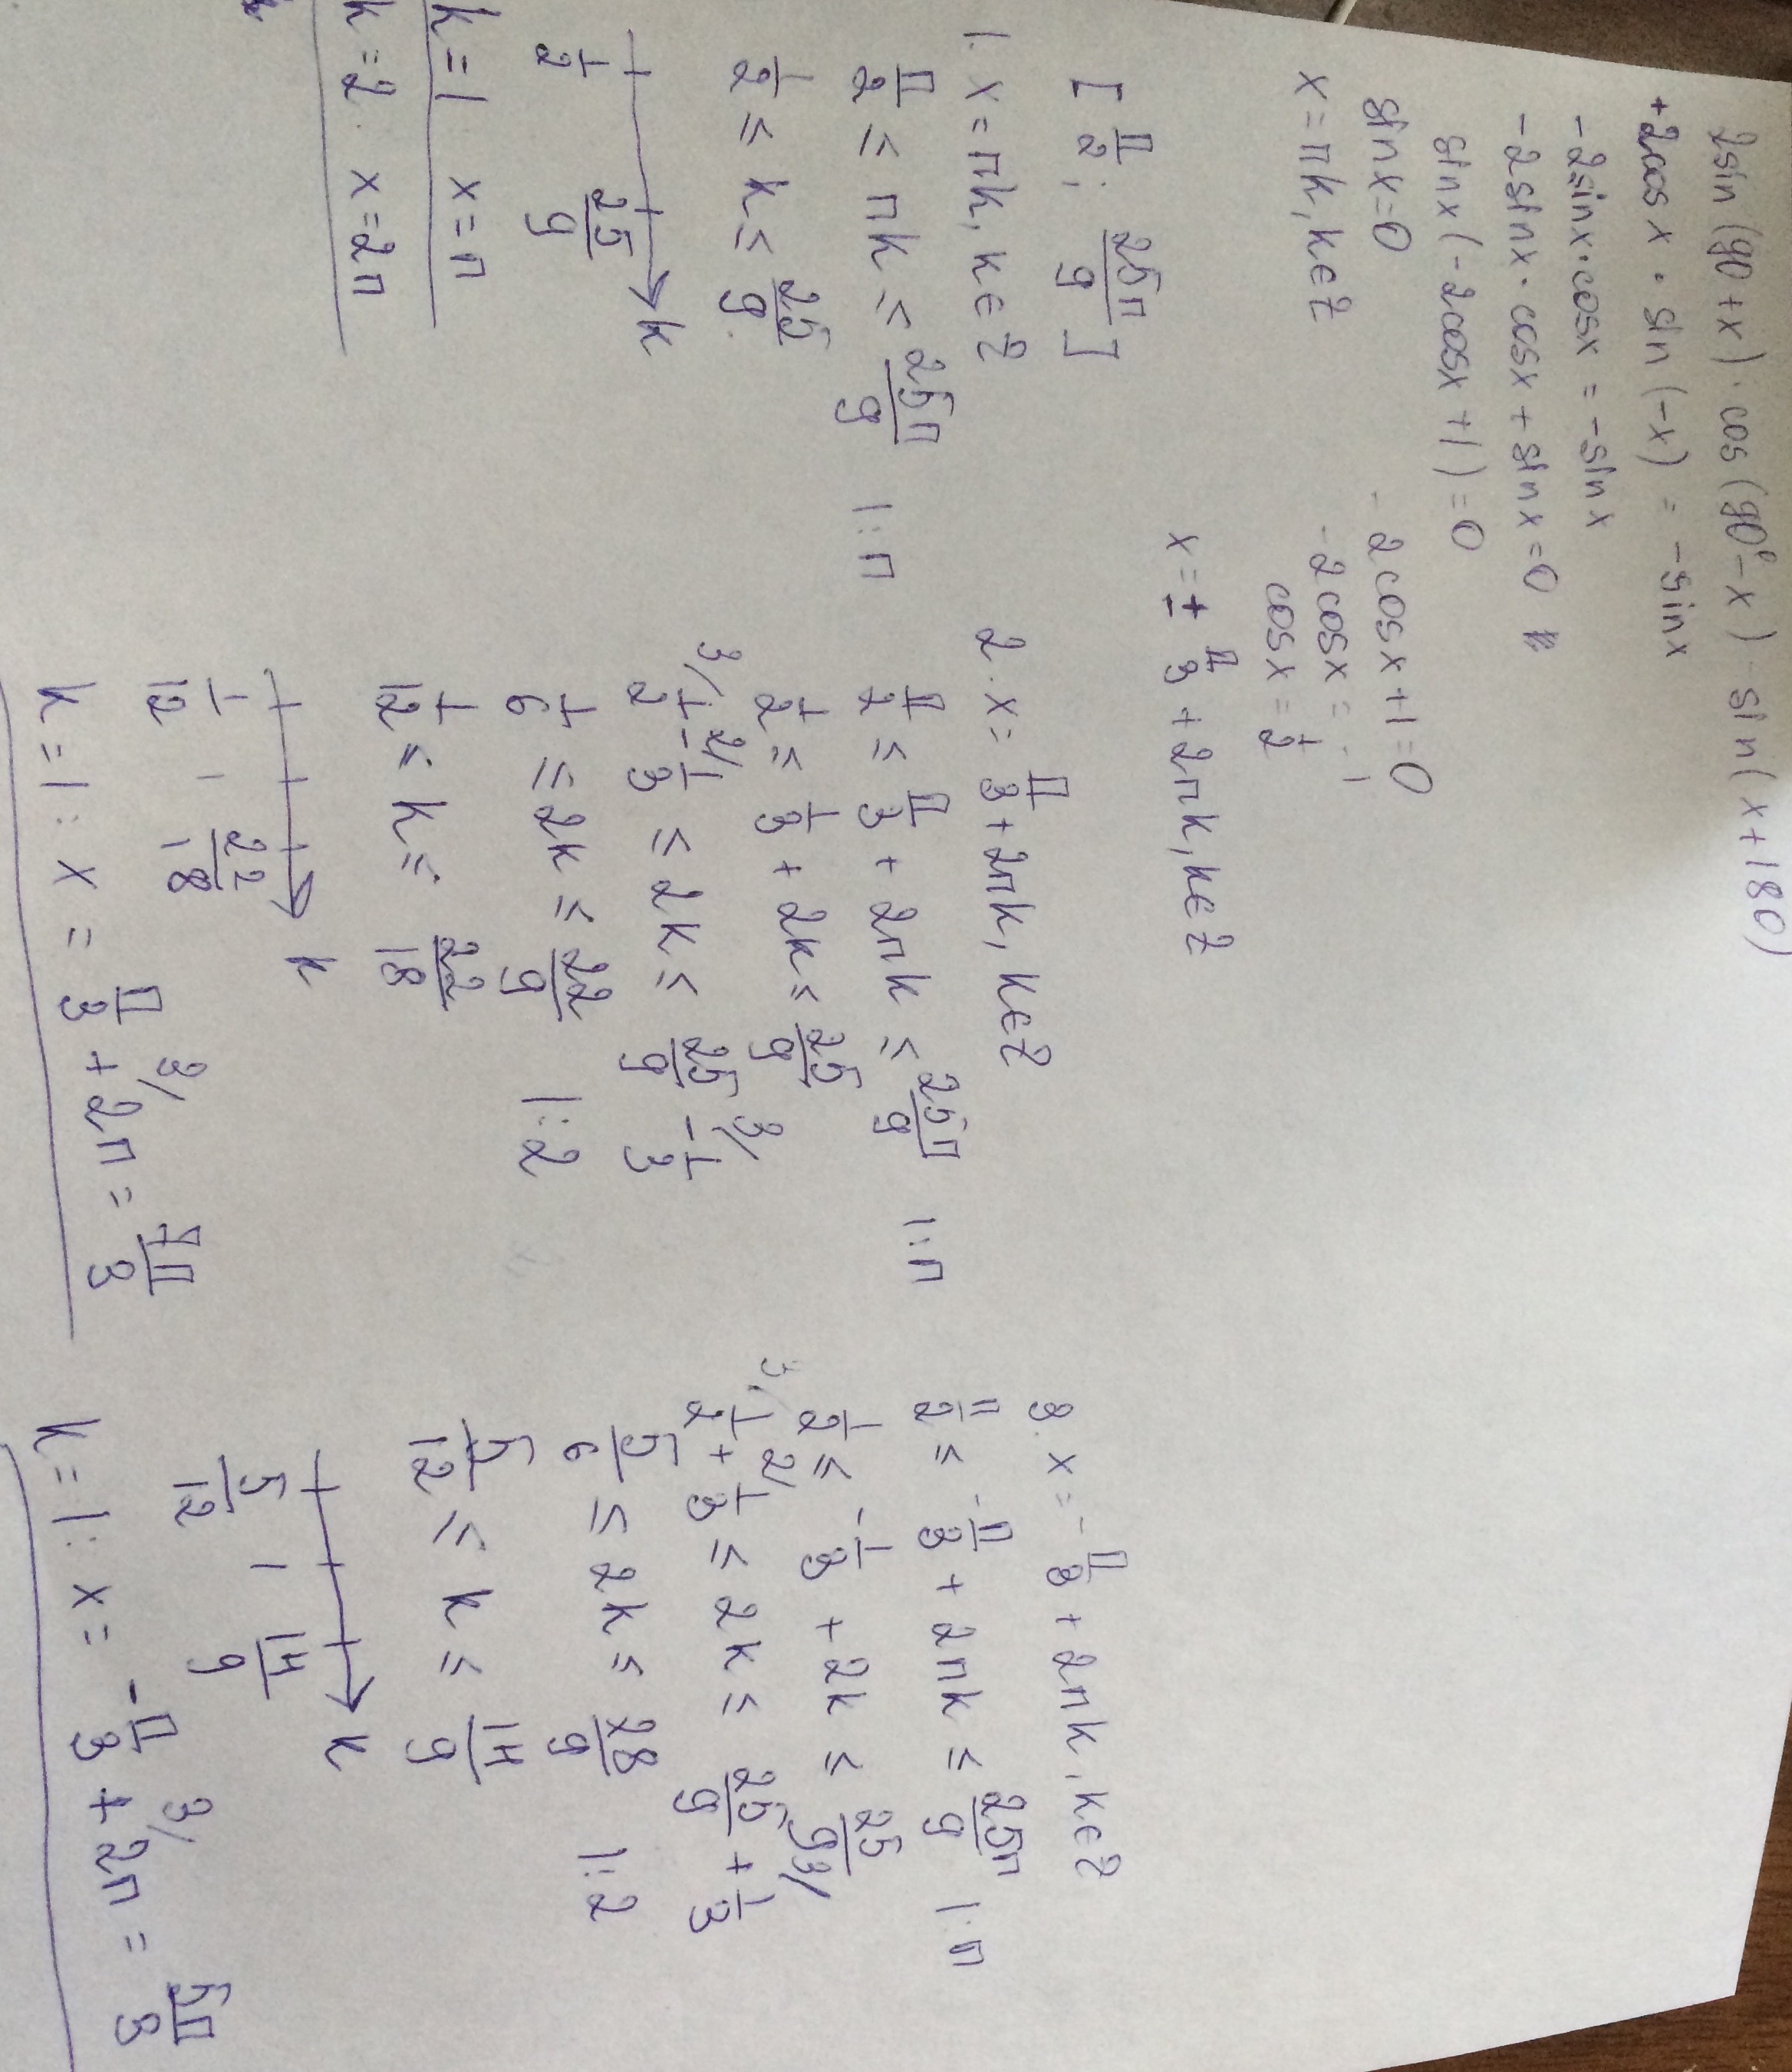 2sin(90+x)·cos(90°-x) sin(x+180)
+2cosx·sin(-x) = -sinx
-2sinx·cosx = -sinx
-2sinx·cosx + sinx = 0
sinx(-2cosx+1) = 0
sinx = 0
x = πk, k∈Z
-2cosx+1 = 0
-2cosx = -1
cosx = 1/2
x = ± π/3 + 2πk, k∈Z
[π/2; 25π/9]
1. x = πk, k∈Z
π/2 ≤ πk ≤ 25π/9 |:π
1/2 ≤ k ≤ 25/9
1/2 25/9 k
k=1 x=π
k=2 x=2π
2. x = π/3 + 2πk, k∈Z
π/2 ≤ π/3 + 2πk ≤ 25π/9 |:π
1/2 ≤ 1/3 + 2k ≤ 25/9
3/ 1/2 - 2/ 1/3 ≤ 2k ≤ 25/9 - 3/ 1/3
1/6 ≤ 2k ≤ 22/9 |:2
1/12 ≤ k ≤ 22/18
1/12 1 22/18 k
k=1: x = π/3 + 3/ 2π = 7π/3
3. x = -π/3 + 2πk, k∈Z
π/2 ≤ -π/3 + 2πk ≤ 25π/9 |:π
1/2 ≤ -1/3 + 2k ≤ 25/9
3/ 1/2 + 2/ 1/3 ≤ 2k ≤ 25/9 + 3/ 1/3
5/6 ≤ 2k ≤ 28/9 |:2
5/12 ≤ k ≤ 14/9
5/12 1 14/9 k
k=1: x = -π/3 + 3/ 2π = 5π/3